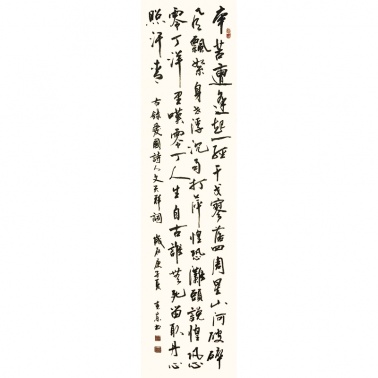 辛苦遭逢起一經干戈寥落四周星山河破碎
風飄絮身世浮沉雨打萍惶恐灘頭說惶恐
零丁洋里嘆零丁人生自古誰無死留取丹心
照汗青 右錄愛國詩人文天祥詞 歲在庚子夏 書